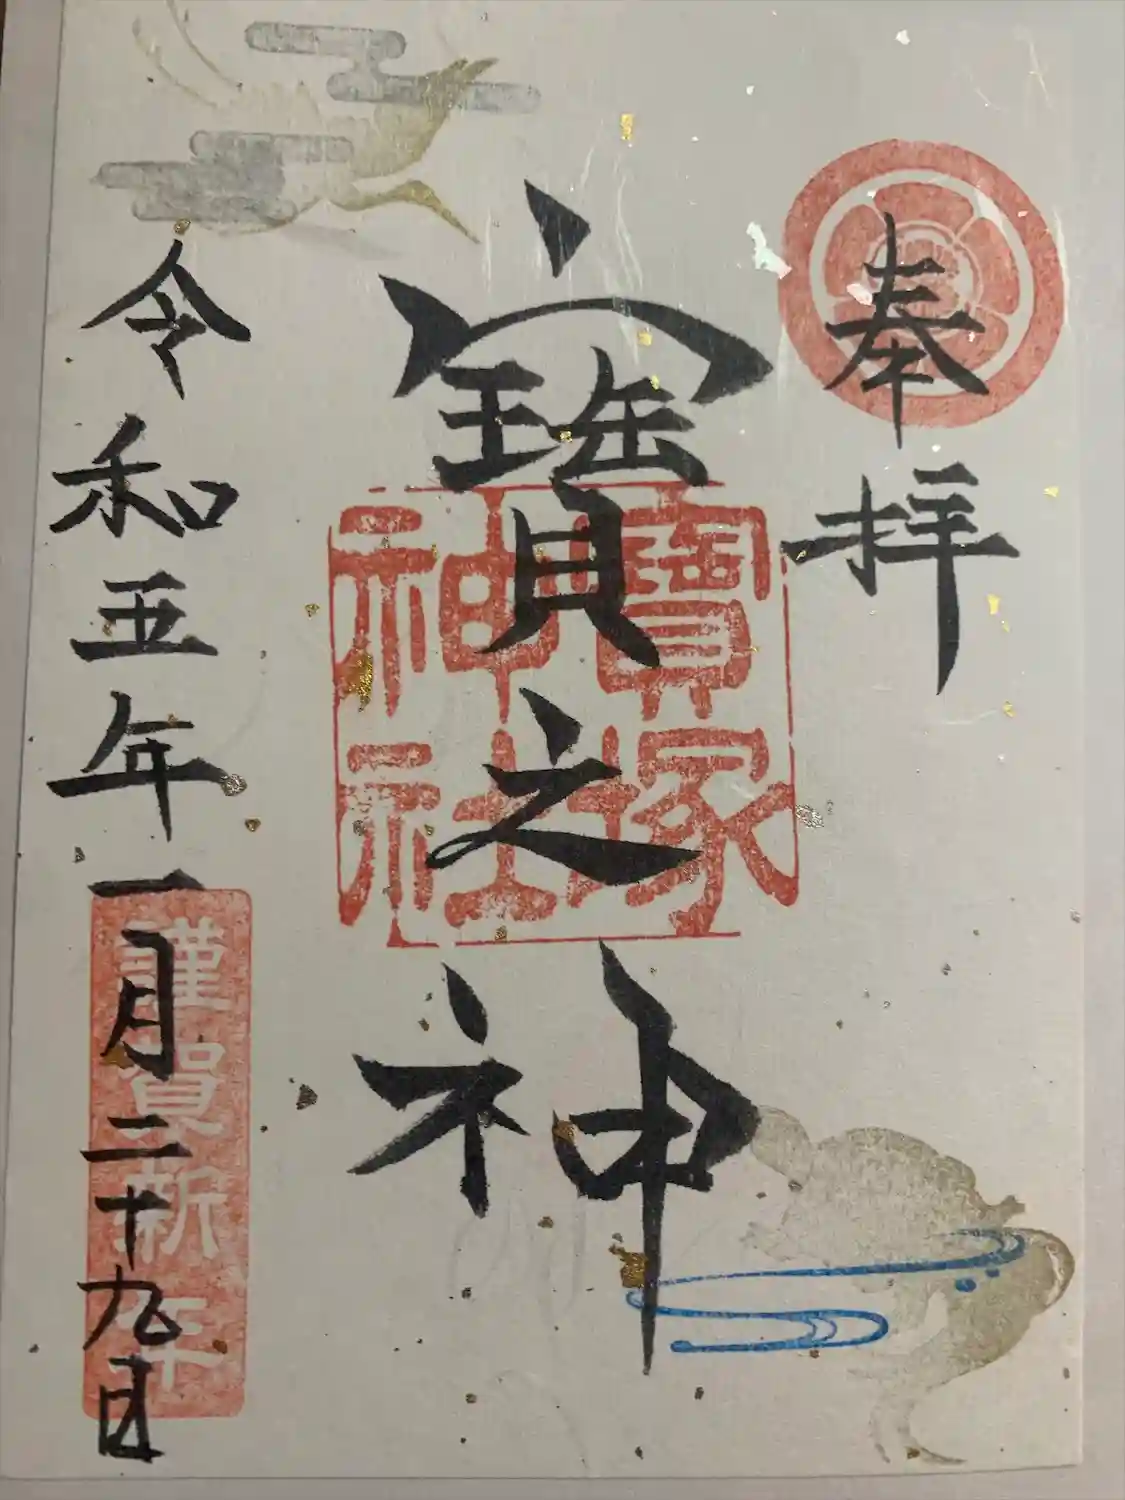 奉拝
寳之神
寳塚
神社
令和五年一月二十九日
謹賀新年